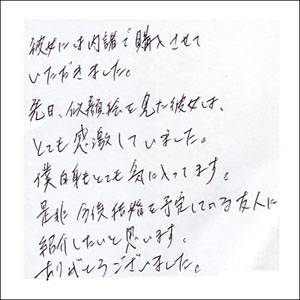 彼女には内諸で購入させて
いただきました。
先日、似顔絵を見た彼女は、
とても感激していました。
僕自身もとても気に入ってます。
是非今後結婚を予定している友人に
紹介したいと思います。
ありがとうございました。